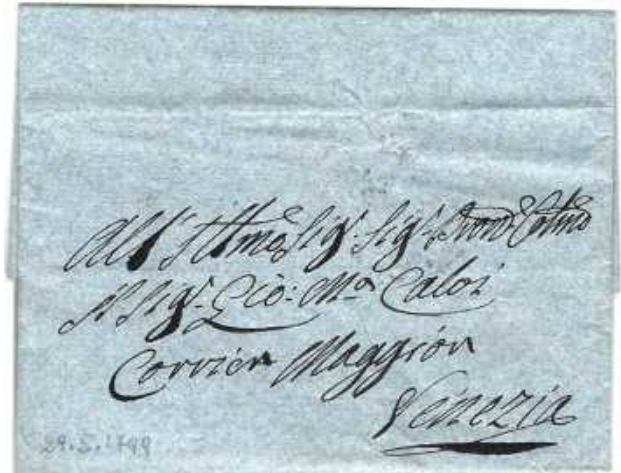 All' Illmo Sigr Sigr Pron Colmo
Il Sigr Gio: Ma Calvi
Corrier Maggior
Venezia
29.5.1799